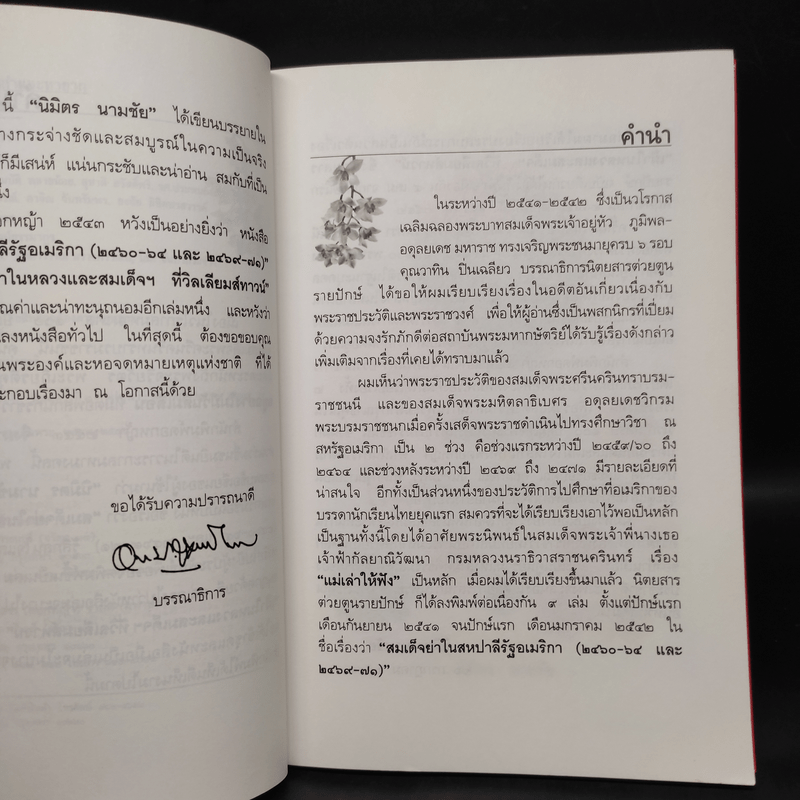 นี้ “นิมิตร นามชัย” ได้เขียนบรรยายใน
างกระจ่างชัดและสมบูรณ์ในความเป็นจริง
ก็มีเสน่ห์ แน่นกระชับและน่าอ่าน สมกับที่เป็น
นึ่ง
กหญ้า ๒๕๔๓ หวังเป็นอย่างยิ่งว่า หนังสือ
ลีรัฐอเมริกา (๒๔๖๐-๖๔ และ ๒๔๖๙-๗๑)”
าในหลวงและสมเด็จฯ ที่วิลเลียมส์ทาวน์”
ณค่าและน่าทะนุถนอมอีกเล่มหนึ่ง และหวังว่า
ลงหนังสือทั่วไป ในที่สุดนี้ ต้องขอขอบคุณ
นพระองค์และหอจดหมายเหตุแห่งชาติ ที่ได้
ะกอบเรื่องมา ณ โอกาสนี้ด้วย
ขอได้รับความปรารถนาดี
บรรณาธิการ
คำนำ
ในระหว่างปี ๒๕๔๑-๒๕๔๒ ซึ่งเป็นวโรกาส
เฉลิมฉลองพระบาทสมเด็จพระเจ้าอยู่หัว ภูมิพล-
อดุลยเดช มหาราช ทรงเจริญพระชนมายุครบ ๖ รอบ
คุณวาทิน ปิ่นเฉลียว บรรณาธิการนิตยสารต่วยตูน
รายปักษ์ ได้ขอให้ผมเรียบเรียงเรื่องในอดีตอันเกี่ยวเนื่องกับ
พระราชประวัติและพระราชวงศ์ เพื่อให้ผู้อ่านซึ่งเป็นพสกนิกรที่เปี่ยม
ด้วยความจงรักภักดีต่อสถาบันพระมหากษัตริย์ได้รับรู้เรื่องดังกล่าว
เพิ่มเติมจากเรื่องที่เคยได้ทราบมาแล้ว
ผมเห็นว่าพระราชประวัติของสมเด็จพระศรีนครินทราบรม-
ราชชนนี และของสมเด็จพระมหิตลาธิเบศร อดุลยเดชวิกรม
พระบรมราชชนกเมื่อครั้งเสด็จพระราชดำเนินไปทรงศึกษาวิชา ณ
สหรัฐอเมริกา เป็น ๒ ช่วง คือช่วงแรกระหว่างปี ๒๔๕๙/๖๐ ถึง
๒๔๖๔ และช่วงหลังระหว่างปี ๒๔๖๙ ถึง ๒๔๗๑ มีรายละเอียดที่
น่าสนใจ อีกทั้งเป็นส่วนหนึ่งของประวัติการไปศึกษาที่อเมริกาของ
บรรดานักเรียนไทยยุคแรก สมควรที่จะได้เรียบเรียงเอาไว้พอเป็นหลัก
เป็นฐานทั้งนี้โดยได้อาศัยพระนิพนธ์ในสมเด็จพระเจ้าพี่นางเธอ
เจ้าฟ้ากัลยาณิวัฒนา กรมหลวงนราธิวาสราชนครินทร์ เรื่อง
“แม่เล่าให้ฟัง” เป็นหลัก เมื่อผมได้เรียบเรียงขึ้นมาแล้ว นิตยสาร
ต่วยตูนรายปักษ์ ก็ได้ลงพิมพ์ต่อเนื่องกัน ๙ เล่ม ตั้งแต่ปักษ์แรก
เดือนกันยายน ๒๕๔๑ จนปักษ์แรก เดือนมกราคม ๒๕๔๒ ใน
ชื่อเรื่องว่า “สมเด็จย่าในสหปาลีรัฐอเมริกา (๒๔๖๐-๖๔ และ
๒๔๖๙-๗๑)”